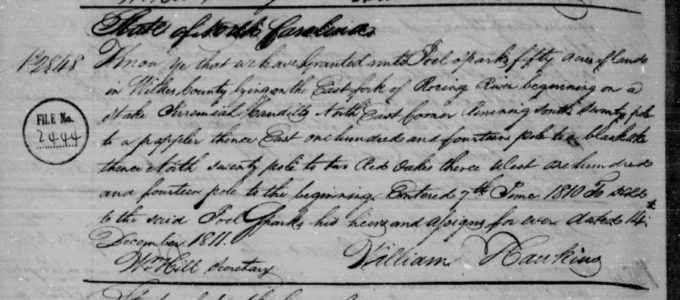 State of North Carolina
No 2848
Know ye that we have granted unto Joel Sparks fifty acres of land
in Wilkes County lying on the East fork of Roring River beginning on a
Stake Jeremiah Caudills North East Corner Running South Seventy pole
to a poppler thence East one hundred and fourteen pole to a black oke
thence North seventy pole to two Red Oakes thence West one hundred
and fourteen pole to the beginning. Entered 7th June 1810 To hold
to the said Joel Sparks his heirs and assigns for ever dated 14th
December 1811.
Wm Hill Secretary
William Hawkins
FILE No.
2444